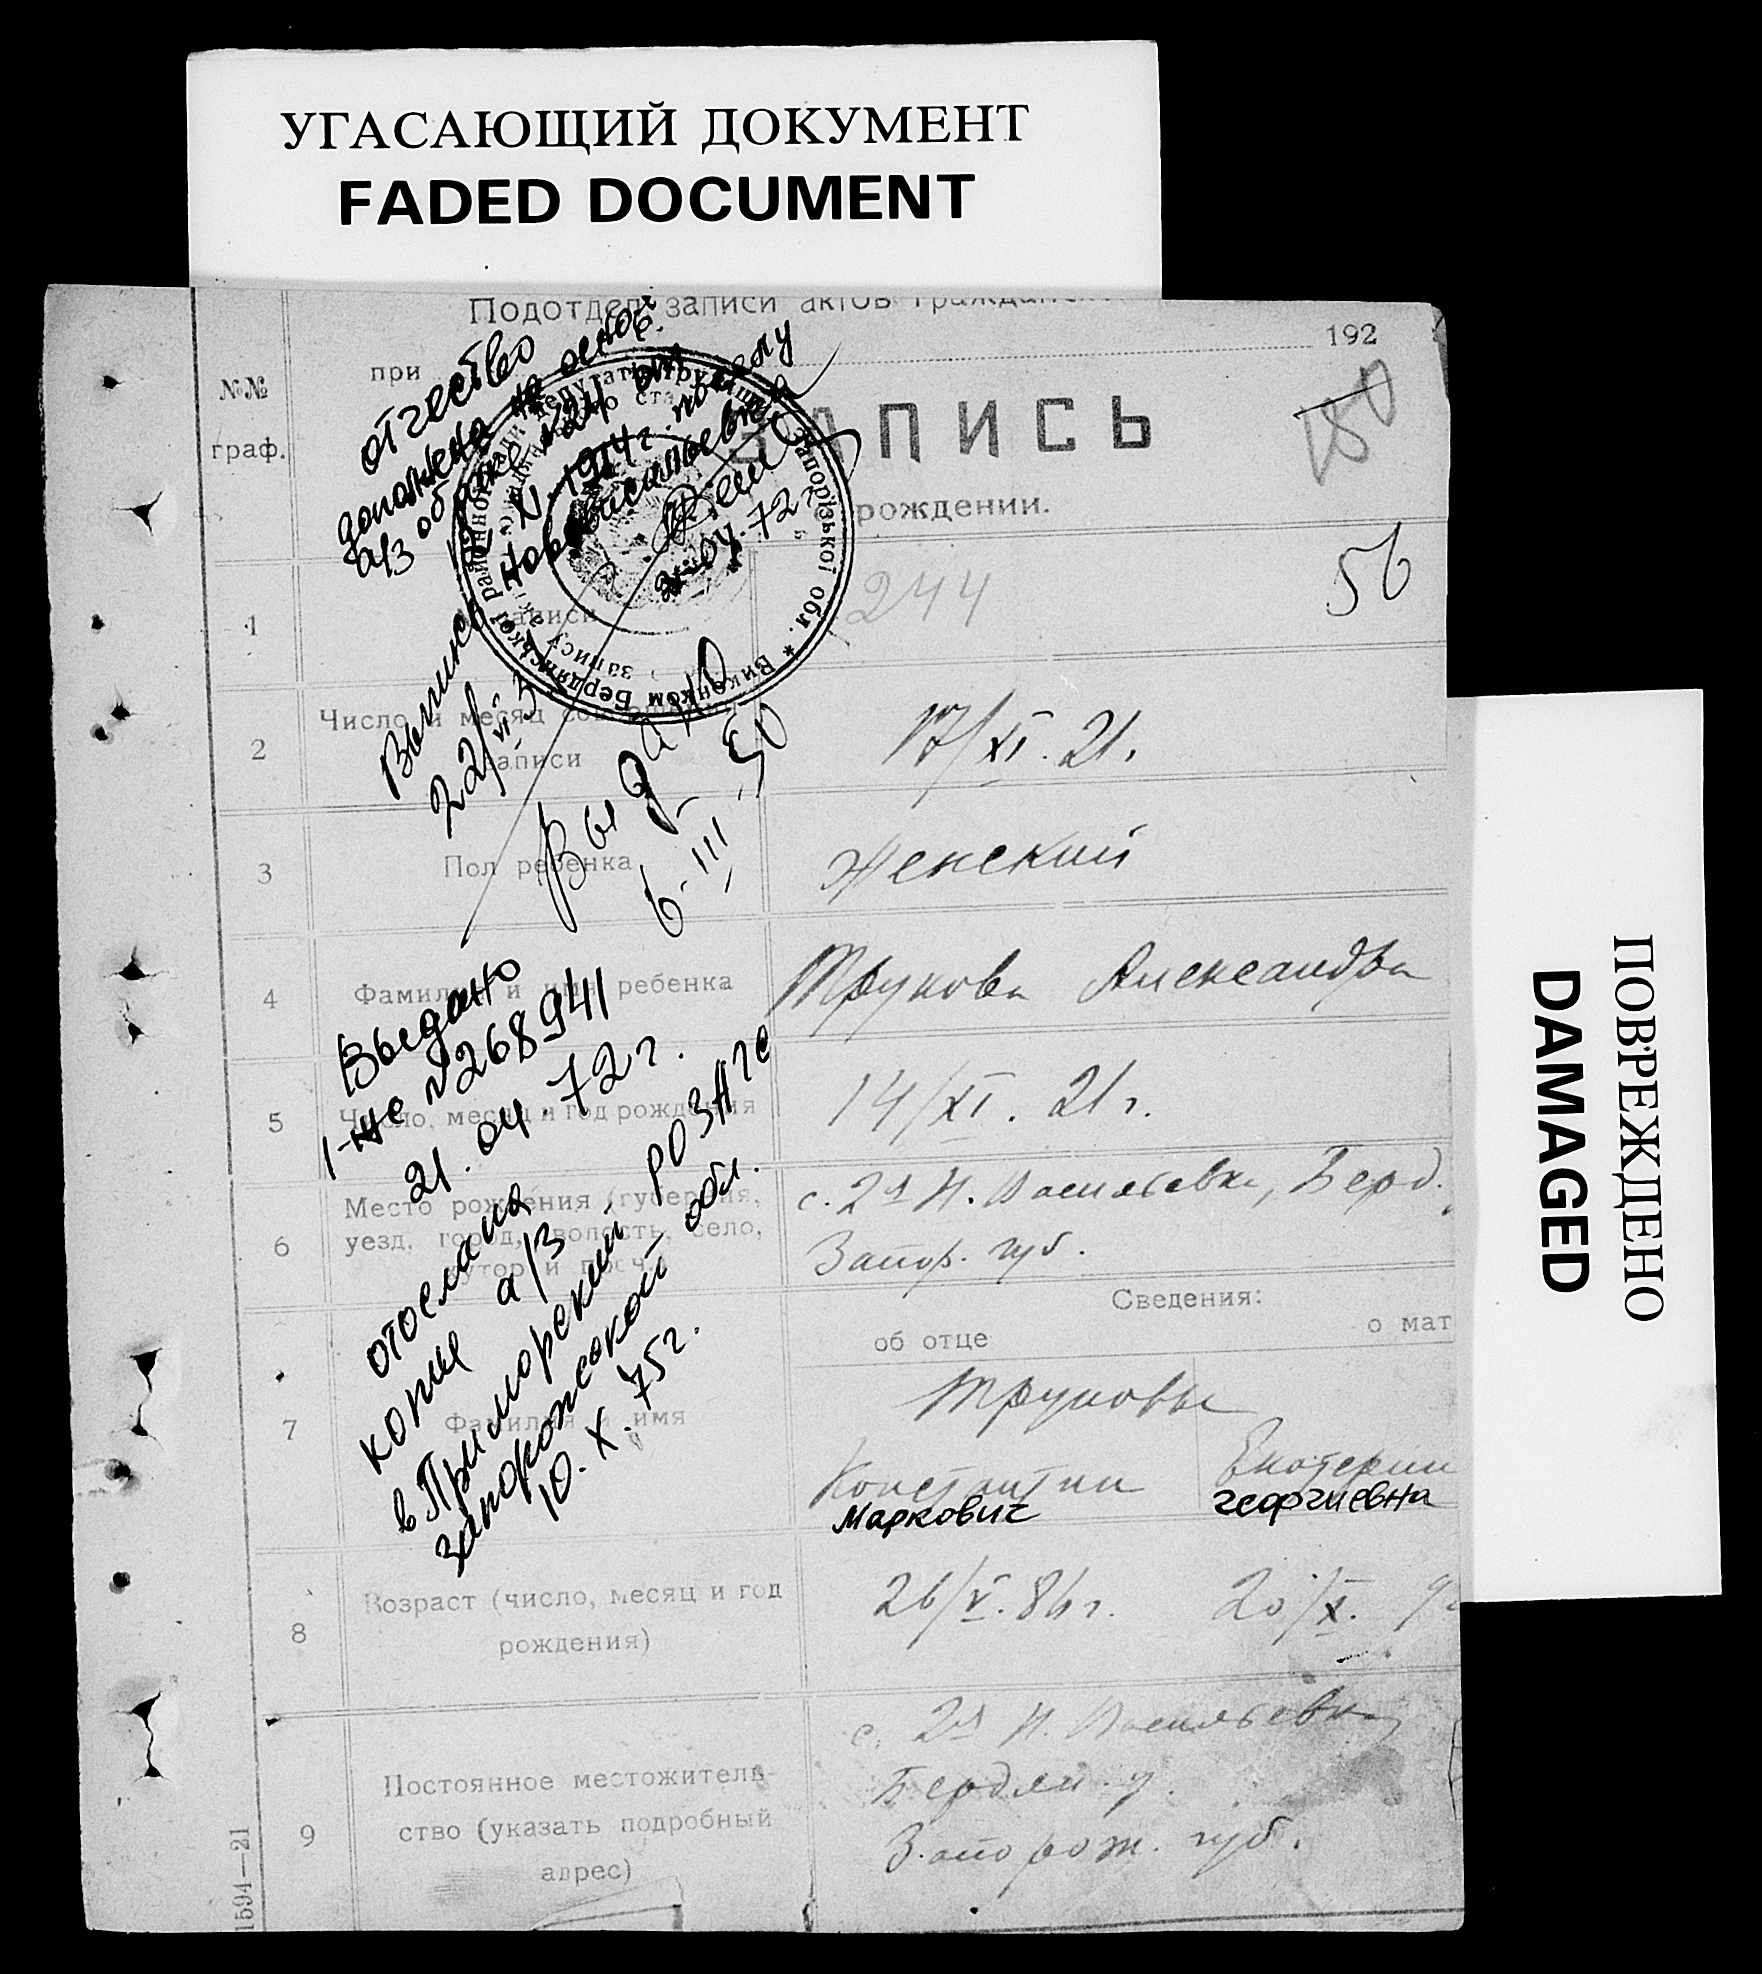 УГАСАЮЩИЙ ДОКУМЕНТ
FADED DOCUMENT
Подотдел записи актов
при
192
№№
граф.
ЗАПИСЬ
рождении.
180
56
отчество
дополнено на основ.
а/з о браке №24 от
XI-1914г. по селу
Нововасильевка
21-04-72г
Виконком Бердянської районної Ради депутатів трудящих Запорізької обл. *
1
записи
244
2
Число и месяц
записи
17/XI. 21.
22/VI
Выдано
6-III-50
3
Пол ребенка
Женский
4
Фамилия и имя ребенка
Трунова Александра
Выдано
1-ЖС №268941
21.04.72г.
5
Число, месяц и год рождения
14/XI. 21г.
6
Место рождения (губерния,
уезд, город, волость, село,
хутор и проч.)
с. 2я Н. Васильевка, Берд.
Запор. губ.
отослана
копия а/з
в Приморский рОЗАГС
запорожской обл.
10.X.75г.
Сведения:
об отце
о мат
7
Фамилия и имя
Труновы
Константин
Маркович
Екатерин
георгиевна
8
Возраст (число, месяц и год
рождения)
26/V. 86г.
20/X. 9
9
Постоянное местожитель-
ство (указать подробный
адрес)
с. 2я Н. Васильевка
Бердян. у.
Запорож. губ.
1594—21
ПОВРЕЖДЕНО
DAMAGED